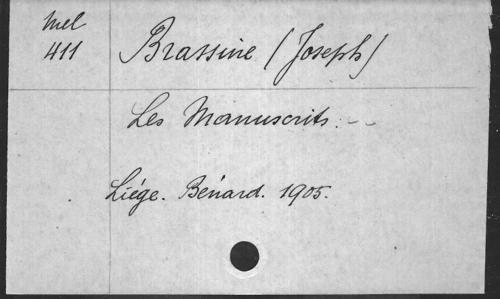 Mel
411
Brassine (Joseph)
Les Manuscrits. --
Liége. Bénard. 1905.